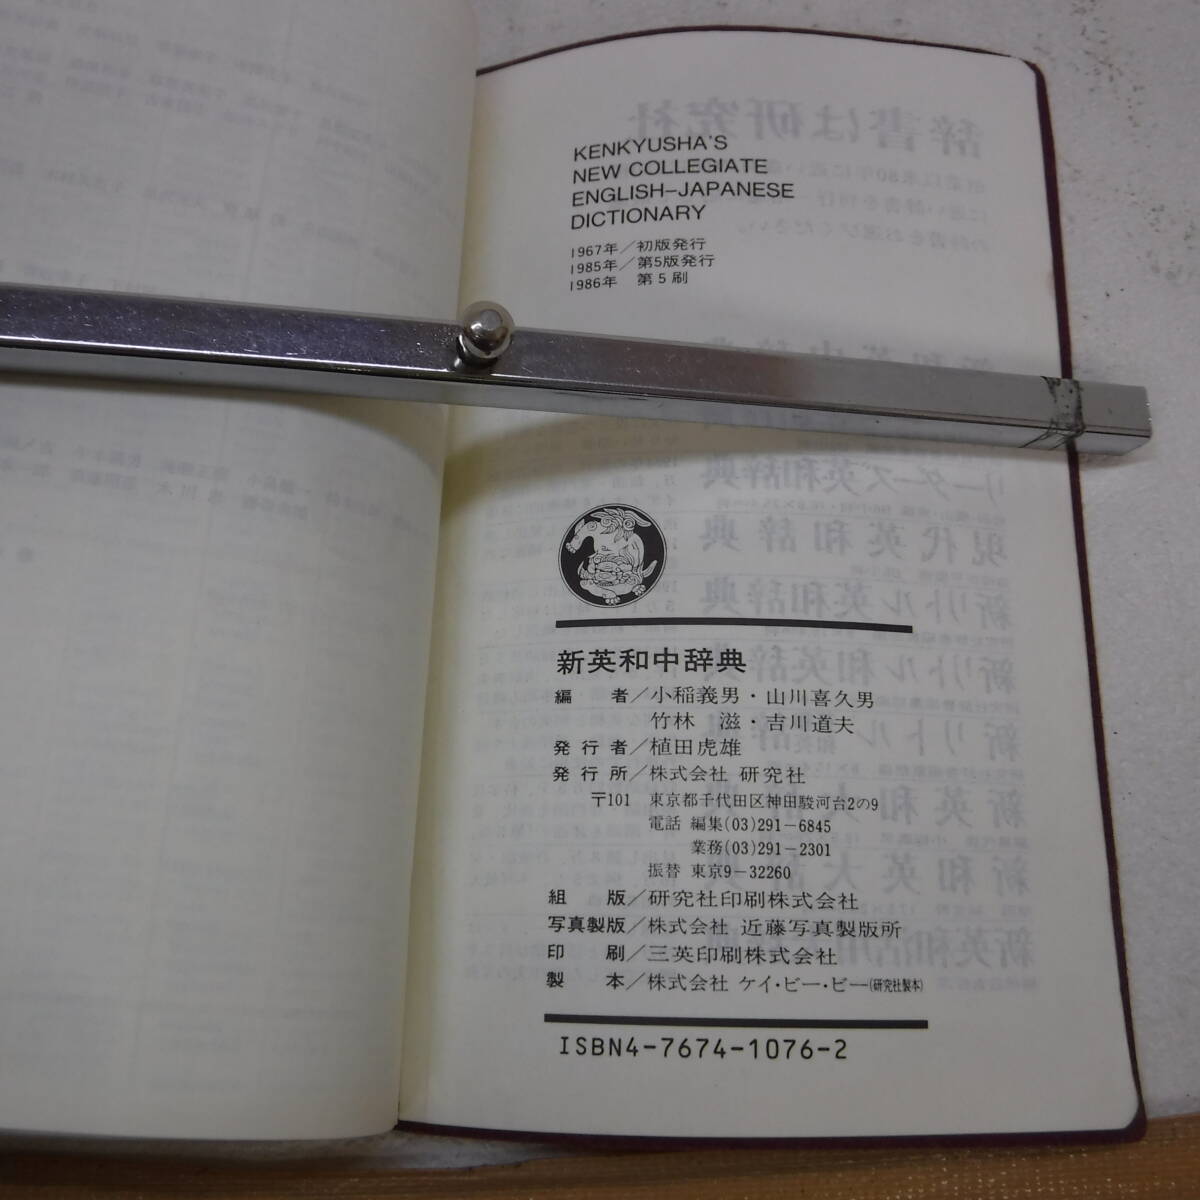 KENKYUSHA'S
NEW COLLEGIATE
ENGLISH–JAPANESE
DICTIONARY
1967年／初版発行
1985年／第5版発行
1986年 第5刷
新英和中辞典
編 者／小稲義男・山川喜久男
竹林 滋・吉川道夫
発行者／植田虎雄
発行所／株式会社 研究社
〒101 東京都千代田区神田駿河台2の9
電話 編集(03)291-6845
業務(03)291-2301
振替 東京9-32260
組 版／研究社印刷株式会社
写真製版／株式会社 近藤写真製版所
印 刷／三英印刷株式会社
製 本／株式会社 ケイ・ビー・ビー(研究社製本)
ISBN4-7674-1076-2